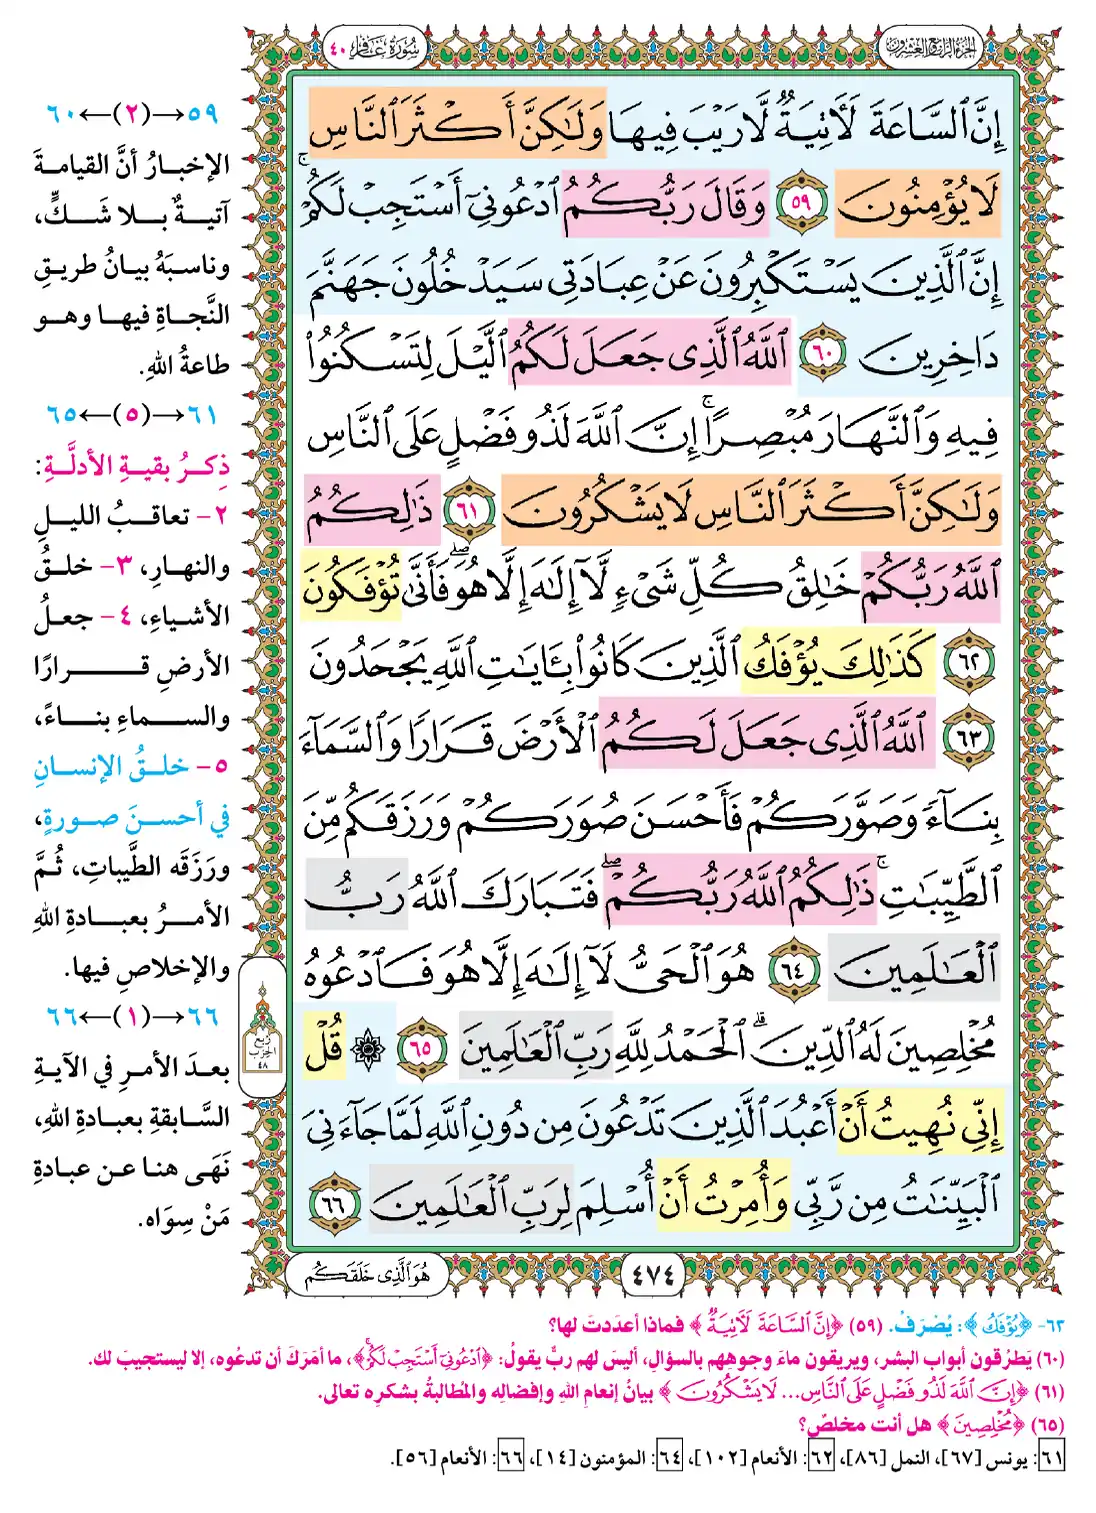 الجزء الرابع والعشرون
سُورَةُ غَافِرٍ ٤٠
إِنَّ ٱلسَّاعَةَ لَأٓتِيَةٌ لَّا رَيْبَ فِيهَا وَلَٰكِنَّ أَكْثَرَ ٱلنَّاسِ
لَا يُؤْمِنُونَ ٥٩ وَقَالَ رَبُّكُمُ ٱدْعُونِىٓ أَسْتَجِبْ لَكُمْ ۚ
إِنَّ ٱلَّذِينَ يَسْتَكْبِرُونَ عَنْ عِبَادَتِى سَيَدْخُلُونَ جَهَنَّمَ
دَاخِرِينَ ٦٠ ٱللَّهُ ٱلَّذِى جَعَلَ لَكُمُ ٱلَّيْلَ لِتَسْكُنُوا۟
فِيهِ وَٱلنَّهَارَ مُبْصِرًا ۚ إِنَّ ٱللَّهَ لَذُو فَضْلٍ عَلَى ٱلنَّاسِ
وَلَٰكِنَّ أَكْثَرَ ٱلنَّاسِ لَا يَشْكُرُونَ ٦١ ذَٰلِكُمُ
ٱللَّهُ رَبُّكُمْ خَٰلِقُ كُلِّ شَىْءٍ لَّآ إِلَٰهَ إِلَّا هُوَ ۖ فَأَنَّىٰ تُؤْفَكُونَ
٦٢ كَذَٰلِكَ يُؤْفَكُ ٱلَّذِينَ كَانُوا۟ بِـَٔايَٰتِ ٱللَّهِ يَجْحَدُونَ
٦٣ ٱللَّهُ ٱلَّذِى جَعَلَ لَكُمُ ٱلْأَرْضَ قَرَارًا وَٱلسَّمَآءَ
بِنَآءً وَصَوَّرَكُمْ فَأَحْسَنَ صُوَرَكُمْ وَرَزَقَكُم مِّنَ
ٱلطَّيِّبَٰتِ ۚ ذَٰلِكُمُ ٱللَّهُ رَبُّكُمْ ۖ فَتَبَارَكَ ٱللَّهُ رَبُّ
ٱلْعَٰلَمِينَ ٦٤ هُوَ ٱلْحَىُّ لَآ إِلَٰهَ إِلَّا هُوَ فَٱدْعُوهُ
مُخْلِصِينَ لَهُ ٱلدِّينَ ۗ ٱلْحَمْدُ لِلَّهِ رَبِّ ٱلْعَٰلَمِينَ ٦٥ ۞ قُلْ
إِنِّى نُهِيتُ أَنْ أَعْبُدَ ٱلَّذِينَ تَدْعُونَ مِن دُونِ ٱللَّهِ لَمَّا جَآءَنِىَ
ٱلْبَيِّنَٰتُ مِن رَّبِّى وَأُمِرْتُ أَنْ أُسْلِمَ لِرَبِّ ٱلْعَٰلَمِينَ ٦٦
٤٧٤
هُوَ ٱلَّذِى خَلَقَكُم
٥٩→(٢)←٦٠
الإخبارُ أنَّ القيامةَ
آتيةٌ بلا شَكٍّ،
وناسبَهُ بيانُ طريقِ
النَّجاةِ فيها وهو
طاعةُ اللهِ.
٦١→(٥)←٦٥
ذِكرُ بقيةِ الأدلَّةِ:
٢- تعاقبُ الليلِ
والنهارِ، ٣- خلقُ
الأشياءِ، ٤- جعلُ
الأرضِ قرارًا
والسماءِ بناءً،
٥- خلقُ الإنسانِ
في أحسنَ صورةٍ،
ورَزَقَه الطَّيباتِ، ثُمَّ
الأمرُ بعبادةِ اللهِ
والإخلاصِ فيها.
٦٦→(١)←٦٦
بعدَ الأمرِ في الآيةِ
السَّابقةِ بعبادةِ اللهِ،
نَهَى هنا عن عبادةِ
مَنْ سِوَاه.
ربع
الحزب
٤٨
٦٢- ﴿يُؤْفَكُ﴾: يُصْرَفُ. (٥٩) ﴿إِنَّ ٱلسَّاعَةَ لَأٓتِيَةٌ﴾ فماذا أعددتَ لها؟
(٦٠) يَطرُقون أبواب البشر، ويريقون ماءَ وجوههم بالسؤال، أليسَ لهم ربٌّ يقولُ: ﴿ٱدْعُونِىٓ أَسْتَجِبْ لَكُمْ ۚ﴾، ما أمَرَكَ أن تدعُوه، إلا ليستجيبَ لك.
(٦١) ﴿إِنَّ ٱللَّهَ لَذُو فَضْلٍ عَلَى ٱلنَّاسِ... لَا يَشْكُرُونَ﴾ بيانُ إنعامِ اللهِ وإفضالِهِ والمُطالبةُ بشكرِه تعالى.
(٦٥) ﴿مُخْلِصِينَ﴾ هل أنت مخلصٌ؟
٦١: يونس [٦٧]، النمل [٨٦]، ٦٢: الأنعام [١٠٢]، ٦٤: المؤمنون [١٤]، ٦٦: الأنعام [٥٦].